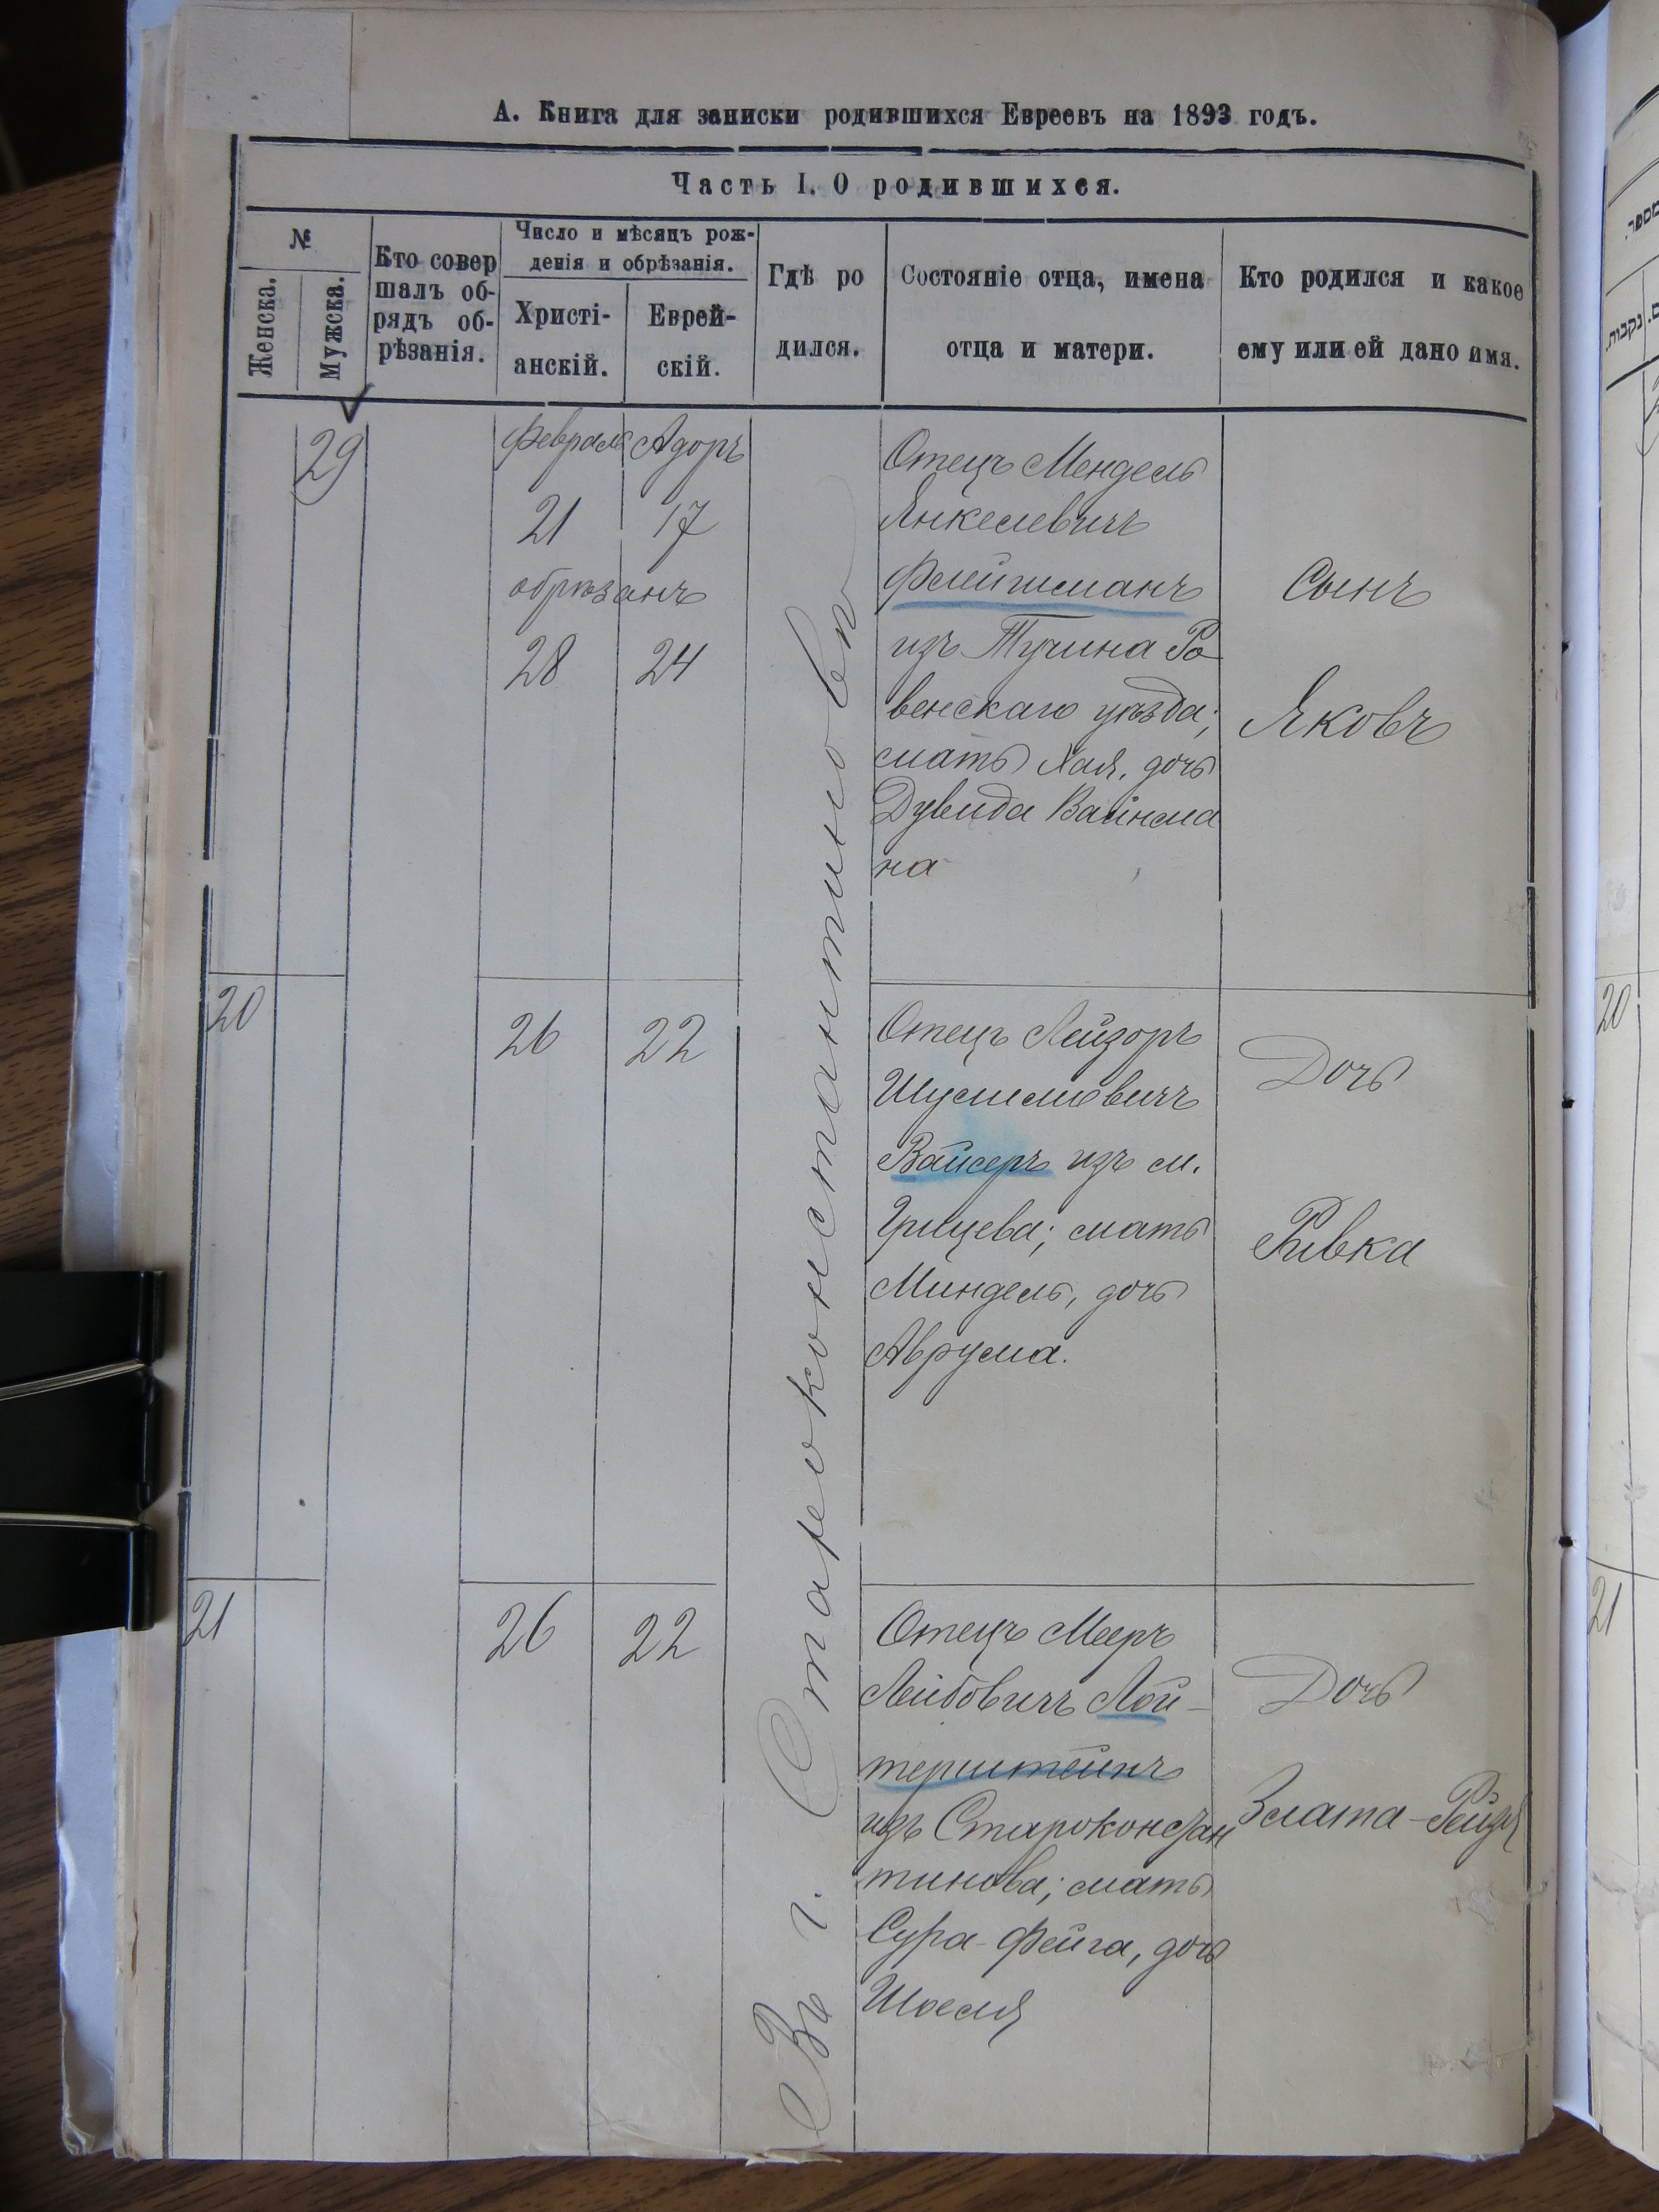 А. Книга для записки родившихся Евреевъ на 1893 годъ.
Часть I. О родившихся.
№
Женска.
Мужска.
Кто совер
шалъ об-
рядъ об-
рѣзанія.
Число и мѣсяцъ рож-
денія и обрѣзанія.
Христі-
анскій.
Еврей-
скій.
Гдѣ ро
дился.
Состояніе отца, имена
отца и матери.
Кто родился и какое
ему или ей дано имя.
29
Февраля Адоръ
21 17
обрѣзанъ
28 24
Въ г. Староконстантиновѣ
Отецъ Мендель
Янкелевичъ
Флейшманъ
изъ Тучина Ро
венскаго уѣзда;
мать Хая, дочь
Дувида Вайнма
на
Сынъ
Яковъ
20
26 22
Отецъ Лейзоръ
Шулимовичъ
Вайсеръ изъ м.
Грицева; мать
Миндель, дочь
Аврума.
Дочь
Ривка
21
26 22
Отецъ Мееръ
Лейбовичъ Лой-
терштейнъ
изъ Староконстан
тинова; мать
Сура-Фейга, дочь
Шоеля
Дочь
Злата-Рейзя
20
21